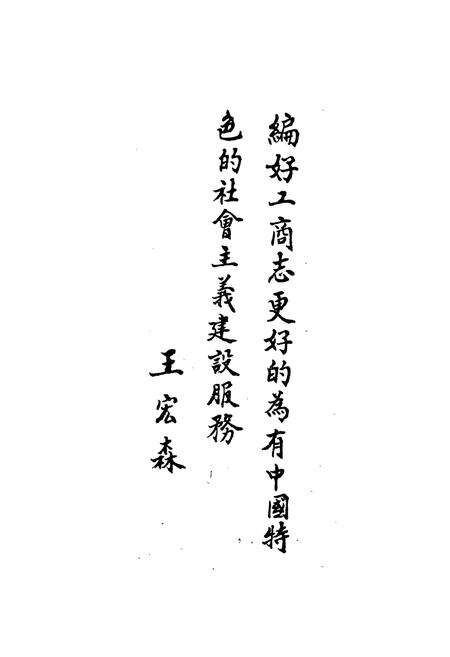 編好工商志更好的為有中國特
色的社會主義建設服務
王宏森